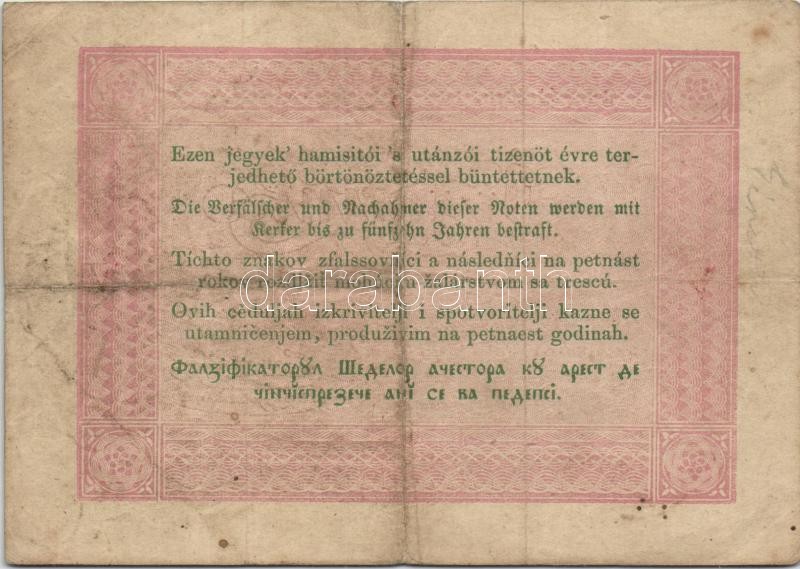 Ezen jegyek' hamisitói 's utánzói tizenöt évre ter-
jedhető börtönöztetéssel büntettetnek.
Die Verfälscher und Nachahmer dieser Noten werden mit
Kerker bis zu fünfzehn Jahren bestraft.
Tíchto znakov zfalssovňíci a následňíci na petnást
rokov žalárstvom sa trescú.
Ovih céduljah izkrivitelji i spotvoritelji kazne se
utamničenjem, produživim na petnaest godinah.
Фалꙁіфікаторꙋл Шеделор ачестора кꙋ арест де
чінчіспреꙁече анї се ва педепсі.
darabanth